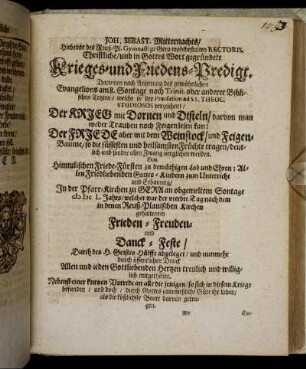 JOH. SEBAST. Mitternachts/
Hiebevor des Reuß-Pl. Gymnasii zu Gera wohlbestalten RECTORIS,
Christliche/ und in Gottes Wort gegründete
Krieges- und Friedens-Predigt.
Darinnen nach Anleitung des gewöhnlichen
Evangelions am 8. Sontage nach Trinit. oder anderer Bibli-
scher Texten/
STUDIOSOS
Der KRIEG mit Dornen und Disteln/ darvon man
weder Trauben noch Feigen lesen kan:
Der FRIEDE aber mit dem Weinstock/ und Feigen-
Baume/ so die süssesten und heilsamsten Früchte tragen/ deut-
lich und sonder allen Zwang verglichen werden.
Dem
Himmlischen Friede-Fürsten zu demüthigen Lob und Ehren; Al-
len Friedliebenden Gottes-Kindern zum Unterricht
und Erbauung/
In der Pfarr-Kirchen zu GERA an obgemeltem Sontage
Jahres/ welcher war der vierdte Tag nach dem
in denen Reuß-Plawischen Kirchen
gehaltenem
Frieden- Freuden-
und
Danck- Feste/
Durch des H. Geistes Hülffe abgeleget/ und nunmehr
durch öffentlichen Druck
Allen und ieden Gottliebenden Hertzen treulich und willig-
lich mitgetheilet.
Nebenst einer kurtzen Vorrede an alle die jenigen/ so sich in diesem Kriege
befunden/ und doch/ durch Gottes
als die köstlichste Beute darvon getra-
gen.